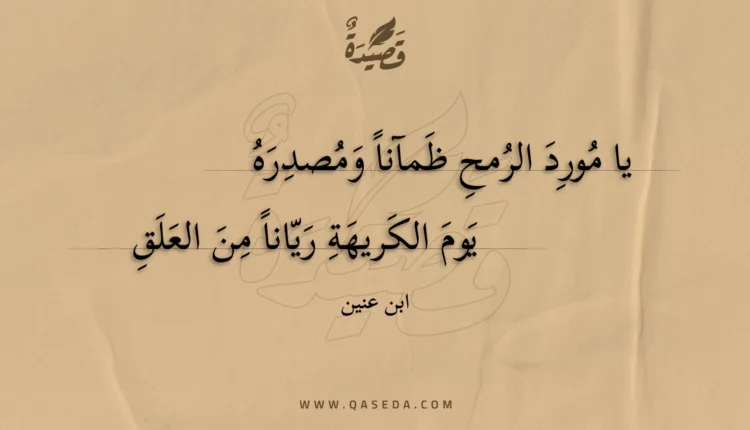 قَصِيْدَةٌ
يا مُورِدَ الرُمحِ ظَمآناً وَمُصدِرَهُ
يَومَ الكَريهَةِ رَيّاناً مِنَ العَلَقِ
ابن عنين
WWW.QASEDA.COM